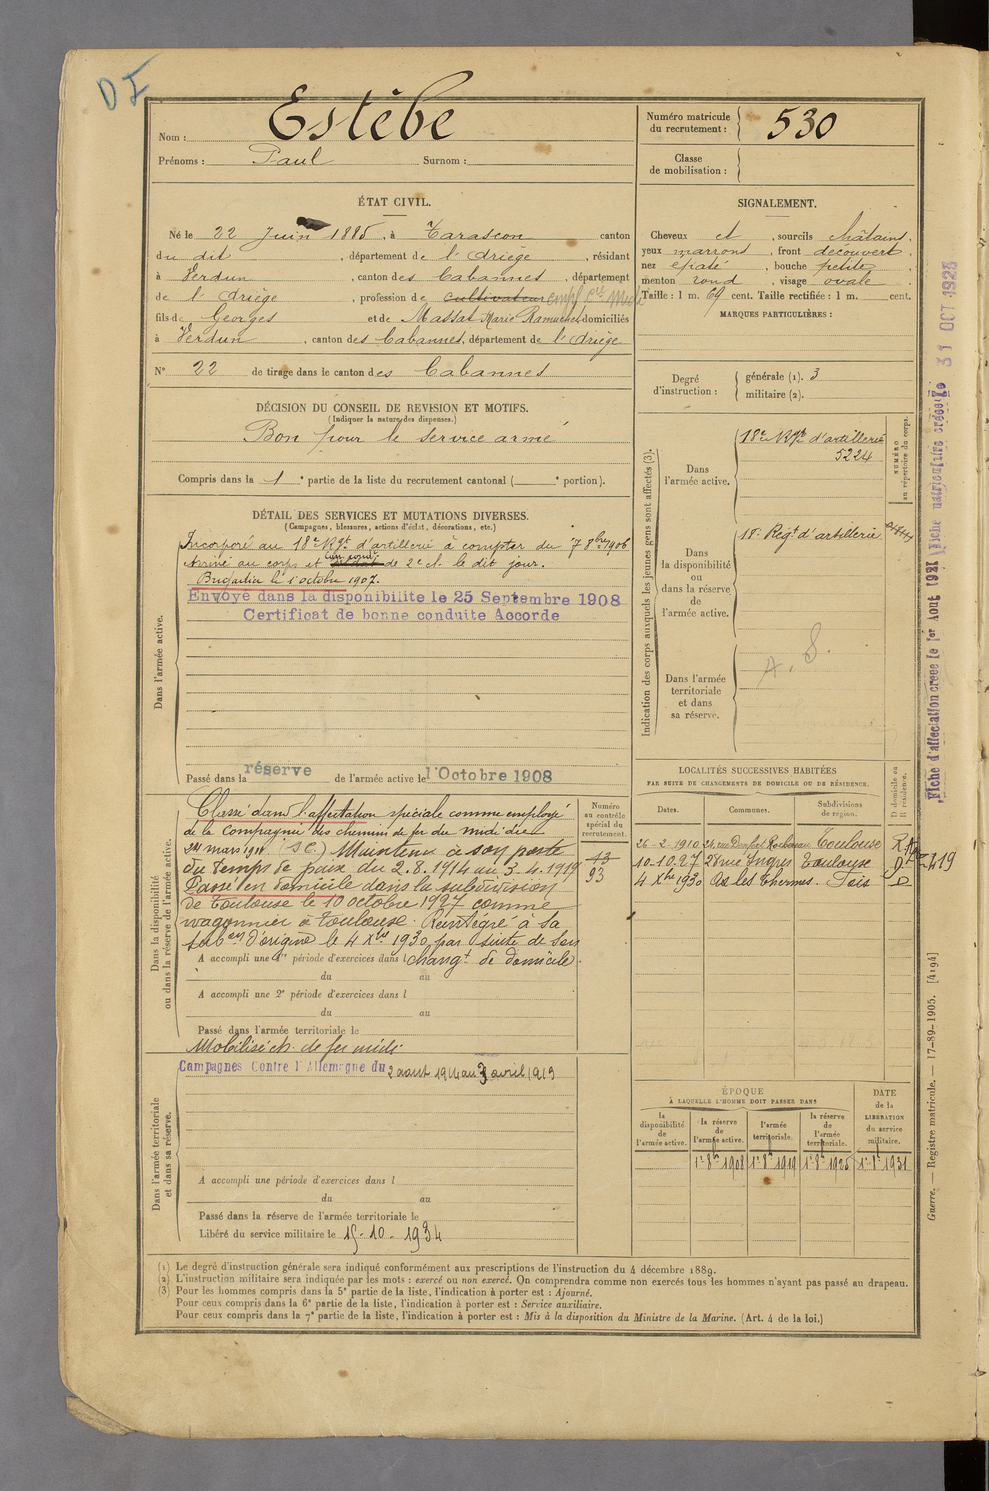 DI
Nom : Estèbe
Prénoms : Paul Surnom :
Numéro matricule du recrutement : 530
Classe de mobilisation :
ÉTAT CIVIL.
Né le 22 Juin 1885, à Tarascon canton
du dit, département de l'Ariège, résidant
à Verdun, canton des Cabannes, département
de l'Ariège, profession de cultivateur empl. Midi
fils de Georges et de Massat Marie domiciliés
à Verdun, canton des Cabannes, département de l'Ariège
N° 22 de tirage dans le canton des Cabannes
SIGNALEMENT.
Cheveux et, sourcils châtains,
yeux marrons, front découvert
nez épaté, bouche petite
menton rond, visage ovale
Taille : 1 m. 69 cent. Taille rectifiée : 1 m. cent.
MARQUES PARTICULIÈRES :
Degré d'instruction : générale (1). 3
militaire (2).
DÉCISION DU CONSEIL DE REVISION ET MOTIFS.
(Indiquer la nature des dispenses.)
Bon pour le service armé
Compris dans la 1e partie de la liste du recrutement cantonal ( e portion).
DÉTAIL DES SERVICES ET MUTATIONS DIVERSES.
(Campagnes, blessures, actions d'éclat, décorations, etc.)
Dans l'armée active.
Incorporé au 18e Rgt d'artillerie à compter du 7 8bre 1906
Arrivé au corps et can. condr de 2e cl. le dit jour.
Brigadier le 1 octobre 1907.
Envoyé dans la disponibilite le 25 Septembre 1908
Certificat de bonne conduite Accorde
Passé dans la réserve de l'armée active le 1 Octobre 1908
Indication des corps auxquels les jeunes gens sont affectés (3).
NUMÉRO au répertoire du corps.
Dans l'armée active.
18e Rgt d'artillerie
5224
Dans la disponibilité ou dans la réserve de l'armée active.
18e Régt d'artillerie
Dans l'armée territoriale et dans sa réserve.
A. S.
Dans la disponibilité ou dans la réserve de l'armée active.
Numéro au contrôle spécial du recrutement.
13
93
Classé dans l'affectation spéciale comme employé
de la Compagnie des chemins de fer du midi du
24 mars 1911 (S.C.) Maintenu à son poste
du temps de paix du 2.8.1914 au 3.4.1919
Passé en domicile dans la subdivision
de Toulouse le 10 octobre 1927 comme
wagonnier à Toulouse. Réintégré à la
subon d'origine le 4 Xbre 1930, par suite de son
changt de domicile.
A accompli une 1re période d'exercices dans l
du au
A accompli une 2e période d'exercices dans l
du au
Passé dans l'armée territoriale le
Mobilisé ch. de fer midi
Dans l'armée territoriale et dans sa réserve.
Campagnes Contre l'Allemagne du 2 aout 1914 au 3 avril 1919
A accompli une période d'exercices dans l
du au
Passé dans la réserve de l'armée territoriale le
Libéré du service militaire le 15-10-1934
LOCALITÉS SUCCESSIVES HABITÉES
PAR SUITE DE CHANGEMENTS DE DOMICILE OU DE RÉSIDENCE.
Dates. Communes. Subdivisions de région. D domicile ou R résidence.
26-2-1910 24, rue Denfert Rochereau Toulouse R
10-10-27 28 rue Ingres Toulouse D 419
4 Xbre 1930 Ax les Thermes. Foix D
ÉPOQUE
À LAQUELLE L'HOMME DOIT PASSER DANS
la disponibilité de l'armée active. la réserve de l'armée active. l'armée territoriale. la réserve de l'armée territoriale.
DATE de la LIBÉRATION du service militaire.
1er 8bre 1908 1er 8bre 1919 1er 8bre 1925 1er 8bre 1931
Fiche d'affectation créée le 1er Aout 1921 Fiche matriculaire créée le 31 OCT 1928
Guerre. — Registre matricule. — 17-89-1905. [4194]
(1) Le degré d'instruction générale sera indiqué conformément aux prescriptions de l'instruction du 4 décembre 1889.
(2) L'instruction militaire sera indiquée par les mots : exercé ou non exercé. On comprendra comme non exercés tous les hommes n'ayant pas passé au drapeau.
(3) Pour les hommes compris dans la 5e partie de la liste, l'indication à porter est : Ajourné.
Pour ceux compris dans la 6e partie de la liste, l'indication à porter est : Service auxiliaire.
Pour ceux compris dans la 7e partie de la liste, l'indication à porter est : Mis à la disposition du Ministre de la Marine. (Art. 4 de la loi.)